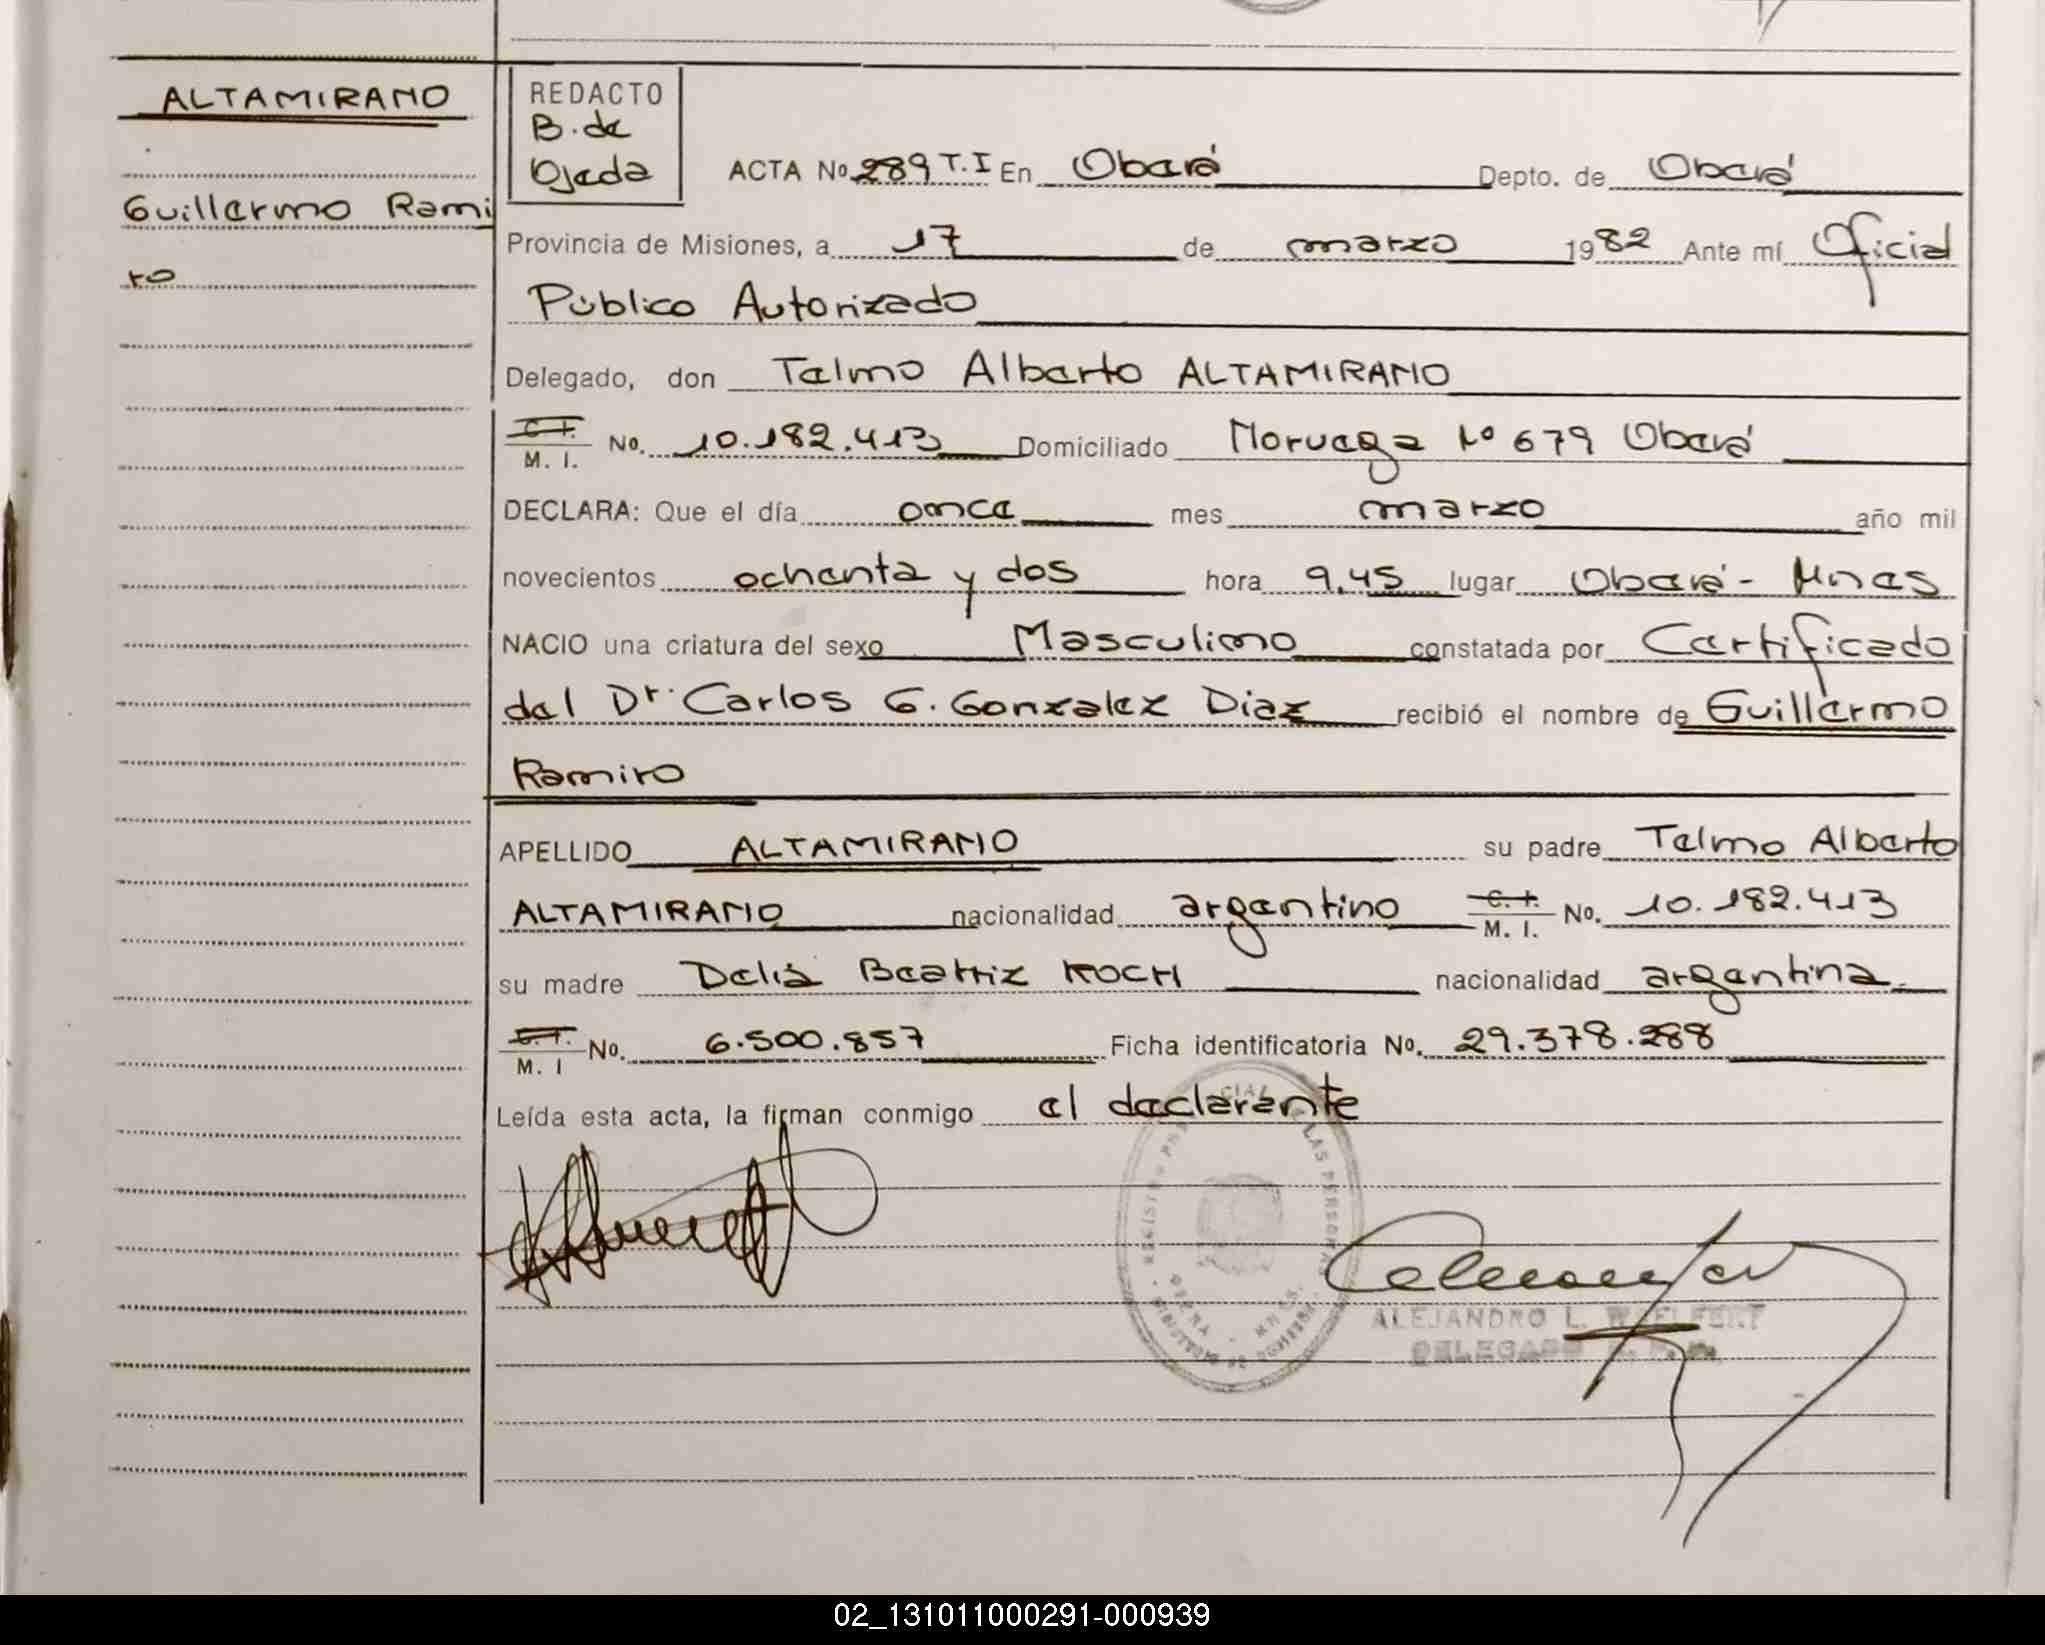 ALTAMIRANO
Guillermo Rami
ro
REDACTO
B. de
Ojeda
ACTA No 289 T.I En Oberá Depto. de Oberá
Provincia de Misiones, a 17 de marzo 1982 Ante mí Oficial
Público Autorizado
Delegado, don Telmo Alberto ALTAMIRANO
C. I.
M. I. No. 10.182.413 Domiciliado Noruega No 679 Oberá
DECLARA: Que el día once mes marzo año mil
novecientos ochenta y dos hora 9,45 lugar Oberá - Mnes
NACIO una criatura del sexo Masculino constatada por Certificado
del Dr. Carlos G. Gonzalez Diaz recibió el nombre de Guillermo
Ramiro
APELLIDO ALTAMIRANO su padre Telmo Alberto
ALTAMIRANO nacionalidad argentino C. I. M. I. No. 10.182.413
su madre Delia Beatriz KOCH nacionalidad argentina
C. I. M. I No. 6.500.857 Ficha identificatoria No. 29.378.288
Leída esta acta, la firman conmigo el declarante
ALEJANDRO L.
DELEGADO
02_131011000291-000939